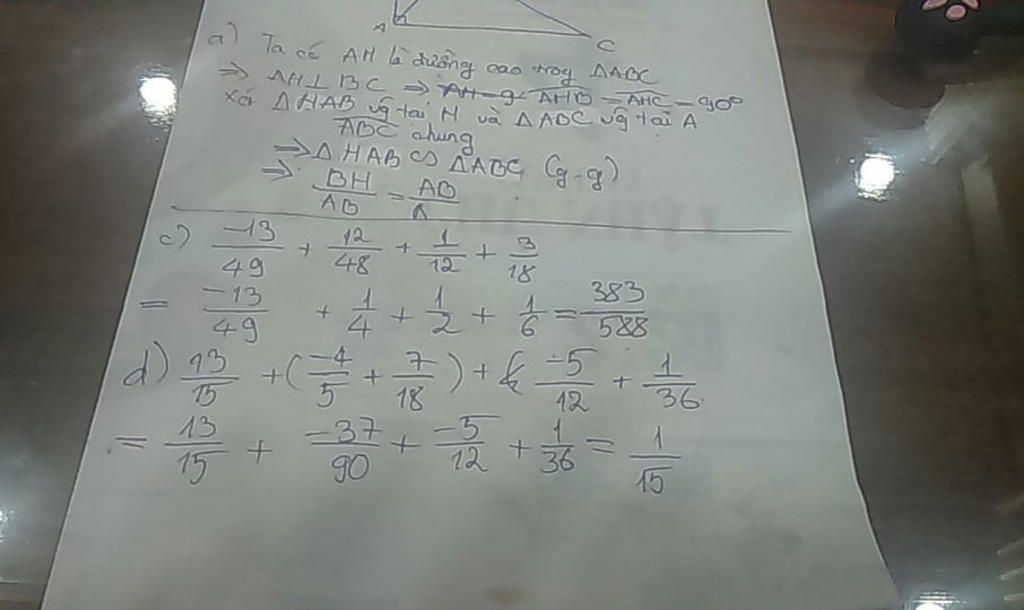 A
C
a) Ta có AH là đường cao trog ΔABC
⇒ AH ⊥ BC ⇒ AHB = AHC = 90°
Xét ΔHAB vg tại H và ΔABC vg tại A
ABC chung
⇒ ΔHAB ∽ ΔABC (g-g)
⇒ BH/AB = AB/
c) -13/49 + 12/48 + 1/12 + 3/18
= -13/49 + 1/4 + 1/2 + 1/6 = 383/588
d) 13/15 + (-4/5 + 7/18) + -5/12 + 1/36
= 13/15 + -37/90 + -5/12 + 1/36 = 1/15